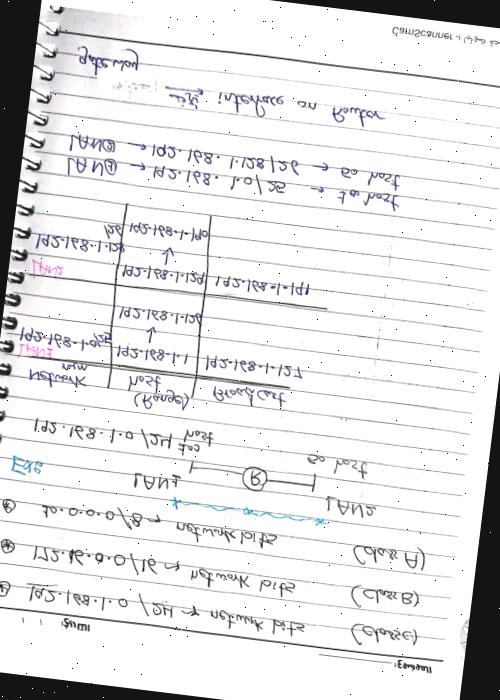 192.168.1.0 /24 → network bits (Class C)
172.16.0.0/16 → network bits (Class B)
10.0.0.0/8 → network bits (Class A)
LAN1 LAN2
Exe R 50 host
192.168.1.0/24 100 host
Network Host (Range) BroadCast
LAN1 192.168.1.1 192.168.1.127
192.168.1.0/25 ↓
192.168.1.126
LAN2 192.168.1.129 192.168.1.191
192.168.1.128 ↓
/26 192.168.1.190
LAN① → 192.168.1.0/25 → 100 host
LAN② → 192.168.1.128/26 → 50 host
→ interface on Router
gateway
CamScanner